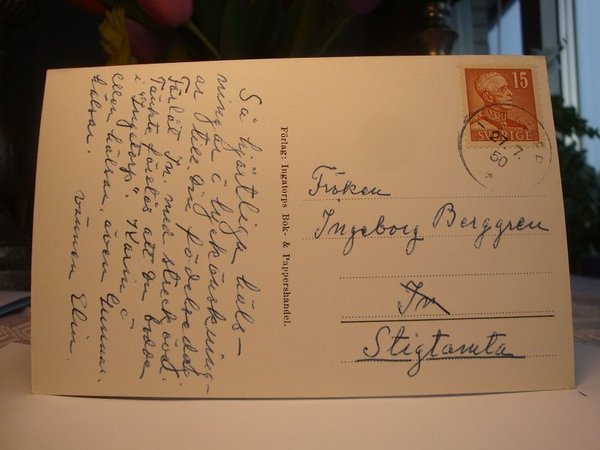 Så hjärtliga häls-
ningar & lyckönskning-
ar till din födelsedag
Förlåt In med streck öst.
Tänkte föreslås att du bodde
i "Ingatorp". Karin &
Ellen hälsar, även Gunnar.
hälsar.
vännen Elin.
Förlag: Ingatorps Bok- & Pappershandel.
15
SVERIGE
50
Fröken
Ingeborg Berggren
In
Stigtomta